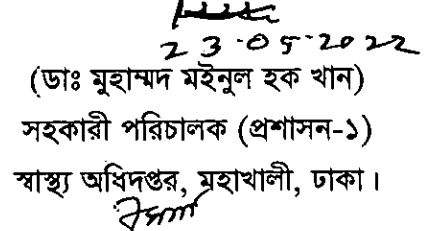 23-05-2022
(ডাঃ মুহাম্মদ মইনুল হক খান)
সহকারী পরিচালক (প্রশাসন-১)
স্বাস্থ্য অধিদপ্তর, মহাখালী, ঢাকা।